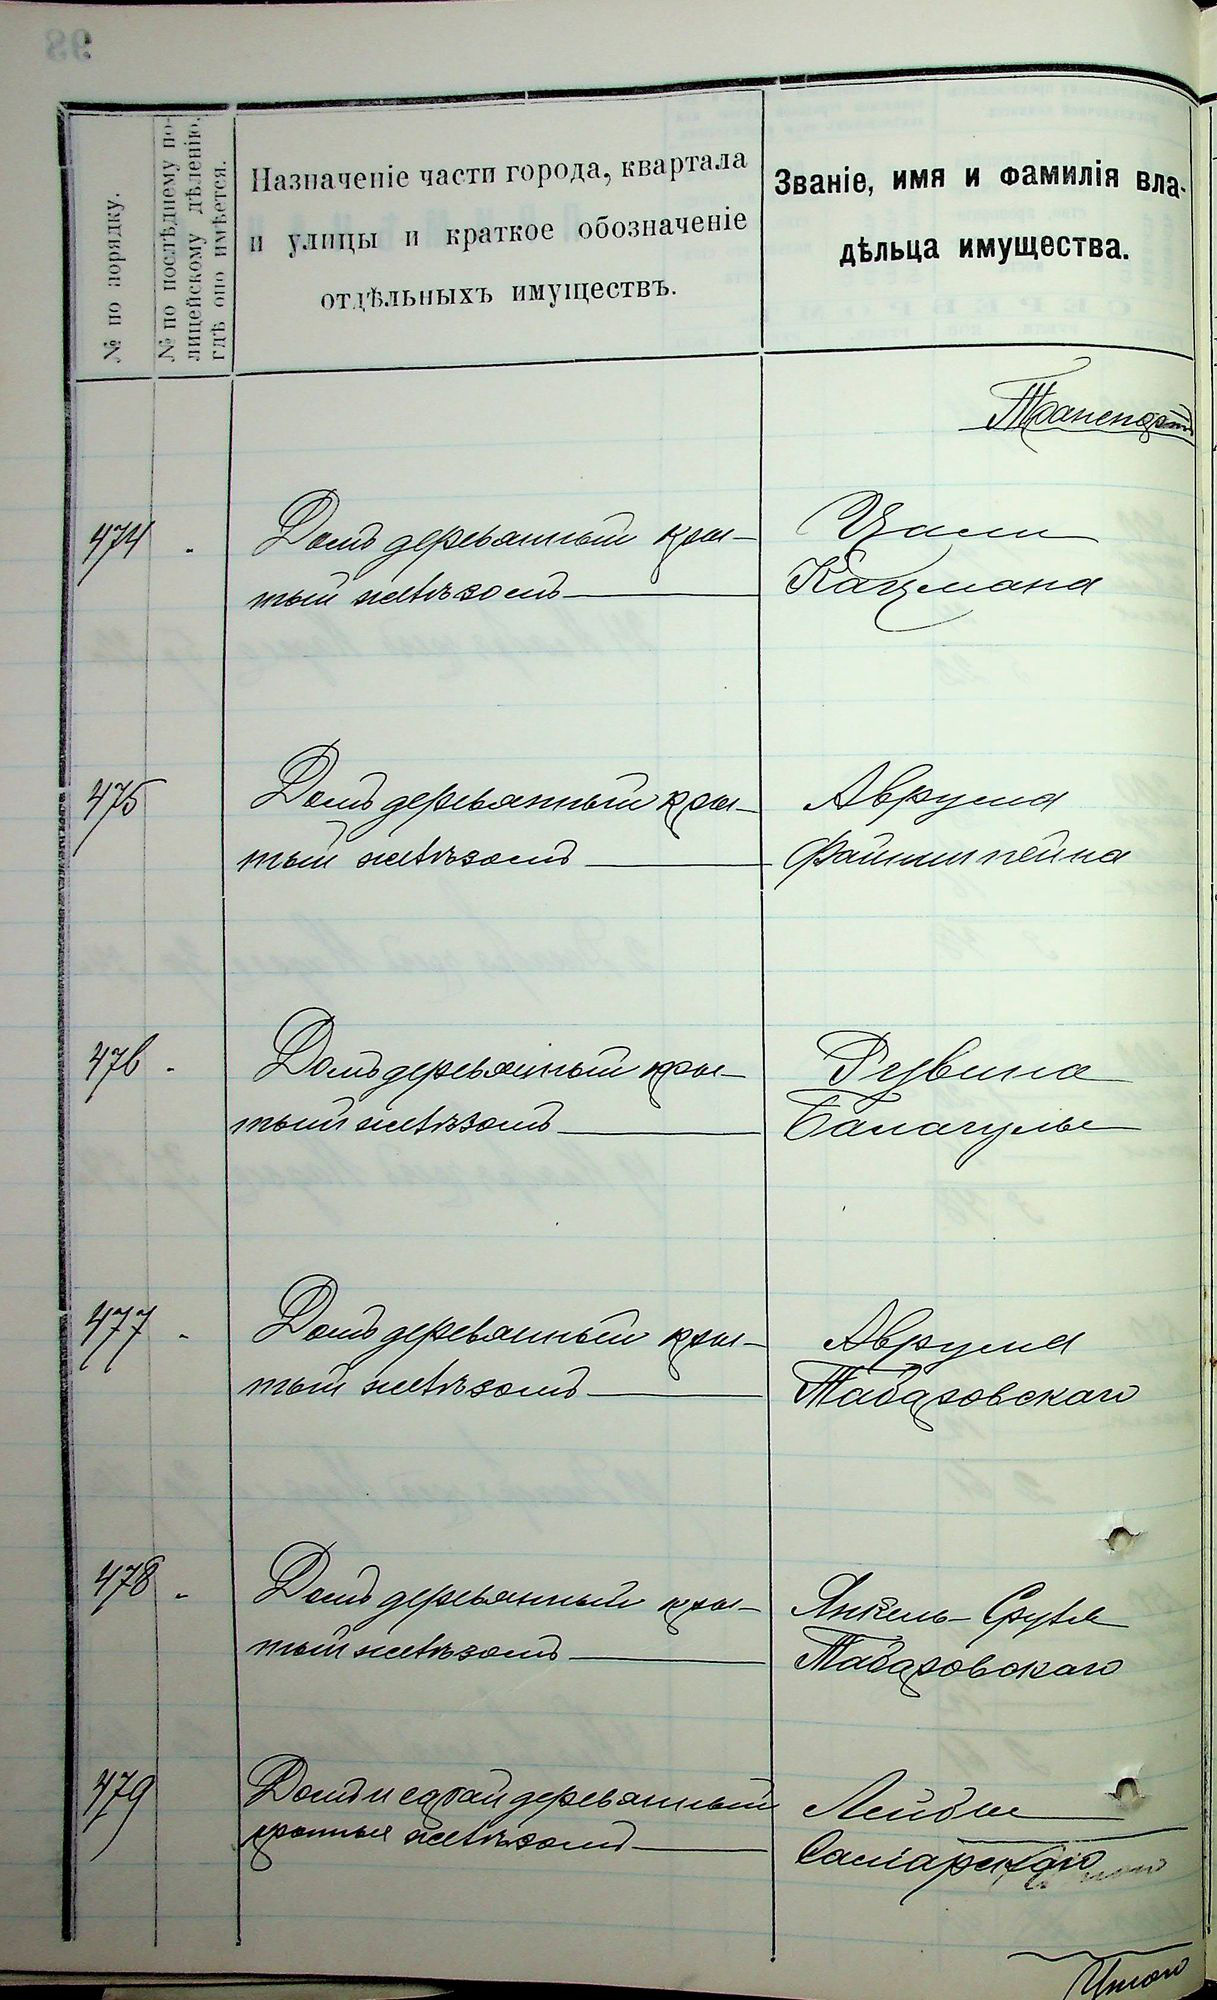 98
№ по порядку.
№ по послѣднему по-
лицейскому дѣленію,
гдѣ оно имѣется.
Назначеніе части города, квартала
и улицы и краткое обозначеніе
отдѣльныхъ имуществъ.
Званіе, имя и фамилія вла-
дѣльца имущества.
Транспортъ
474
Домъ деревянный кры-
тый желѣзомъ
Кацмана
475
Домъ деревянный кры-
тый желѣзомъ
Аврума
Файнштейна
476
Домъ деревянный кры-
тый желѣзомъ
Рувина
Балагулы
477
Домъ деревянный кры-
тый желѣзомъ
Аврума
Табаховскаго
478
Домъ деревянный кры-
тый желѣзомъ
Янкель-Сруля
Табаховскаго
479
Домъ и сарай деревянный
крытые желѣзомъ
Лейбы
Самарскаго
Итого